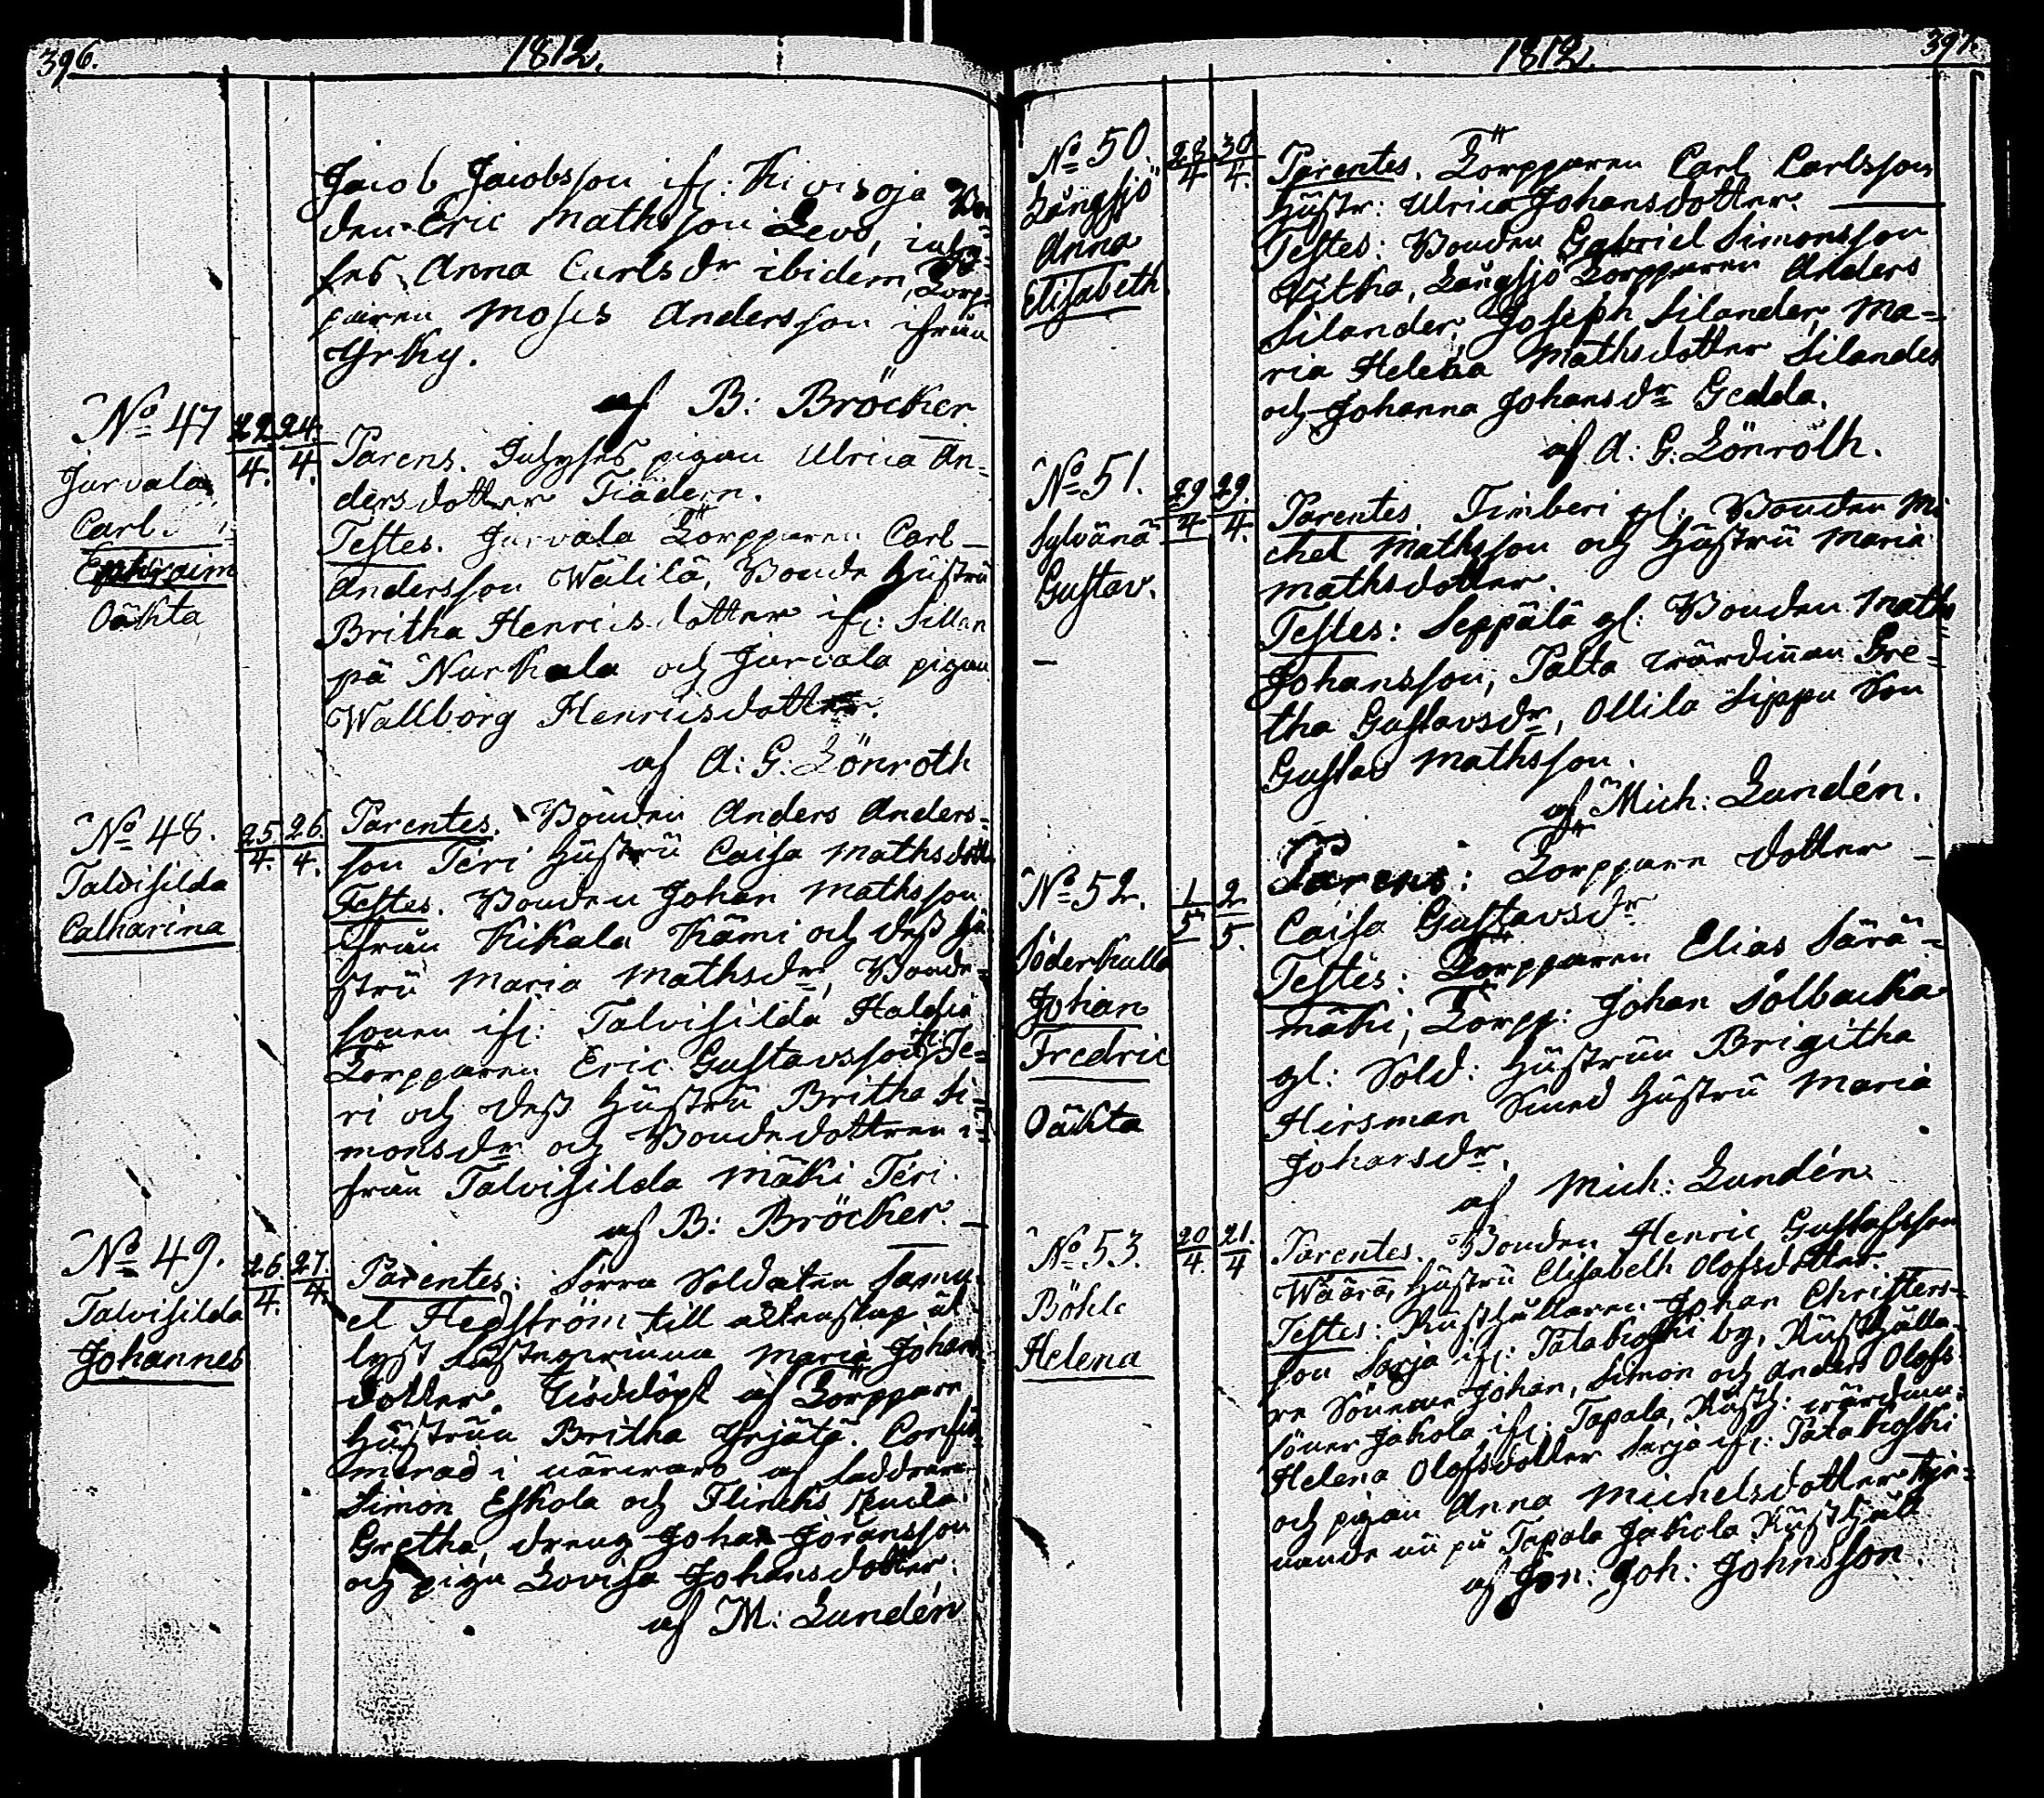 396.
1812.
Jacob Jacobsson ifr: Kivisoja Bon-
den Eric Mathsson Levo, inhy-
ses Anna Carlsdr ibidem, Torp-
paren Moses Andersson ifrån
Yrky.
af B: Bröcker
No 47
22/4. 24./4.
Jurvala
Carl
Ephraim
Oäkta
Parens. Inhyses pigan Ulrica An-
dersdotter Tiäder.
Testes. Jurvala Torpparen Carl
Andersson Wälilä, Bonde hustru
Britha Henricsdotter ifr: Sillan
på Nurkala och Jurvala pigan
Wallborg Henricsdotter.
af A: G: Lönroth
No 48.
25./4. 26./4.
Talvisilda
Catharina
Parentes. Bonden Anders Anders-
son Teri hustru Caisa Mathsdotter
Testes. Bonden Johan Mathsson
ifrån Kikala Kämi och dess hu-
stru Maria Mathsdr, Bonde-
sonen ifr: Talvisilda
Torpparen Eric Gustavsson ifr: Te-
ri och dess hustru Britha Si-
monsdr och Bondedottren i-
från Talvisilda Mäki Teri.
af B: Bröcker.
No 49.
26./4. 27./4.
Talvisilda
Johannes
Parentes: Sorra Soldaten Samu-
el Hedström till äktenskap ut-
lyst Maria Johans-
dotter. Nöddöpt af Torppare
hustrun Britha Yrjätä. Confir-
merad i närvaro af faddrarne
Simon Eskola och Flincks Enka
Gretha, dreng Johan Joransson
och piga Lovisa Johansdotter.
af M: Lundén
1812.
397.
No 50.
28/4 30/4.
Långsjö
Anna
Elisabeth
Parentes. Torpparen Carl Carlsson
hustr: Ulrica Johansdotter.
Testes: Bonden Gabriel Simonsson
Witka, Långsjö Torpparen Anders
Silander, Joseph Silander, Ma-
ria Helena Mathsdotter Silander
och Johanna Johansdr Gedda.
af A: G: Lönroth.
No 51.
29/4 29./4.
Sylvänä
Gustav.
Parentes. Timberi gl: Bonden Mi
chel Mathsson och hustru Maria
Mathsdotter.
Testes: Seppälä gl: Bonden Maths
Johansson, Palta wärdinnan Gre-
tha Gustavsdr, Ollila Sippu Son
Gustav Mathsson.
af Mich: Lundén.
No 52.
1/5 2/5.
Söderkulla
Johan
Fredric
Oäkta
Parens: Torppare dotter
Caisa Gustavsdr
Testes: Torpparen Elias Särä-
mäki, Torpp: Johan Solbacka
gl: Sold: hustrun Brigitha
Hirsman Smed hustru Maria
Johansdr.
af Mich: Lundén.
No 53.
20/4. 21./4
Böhle
Helena
Parentes. Bonden Henric Gustafsson
Wäärä, hustru Elisabeth Olofsdotter.
Testes: Rusthållaren Johan Christers-
son Sarja ifr: Patakoski by, Rusthålla-
re Sönerne Johan, Simon och Anders Olofs
söner Jakola ifr: Tapala, Rusth: wärdinn-
Helena Olofsdotter Sarja ifr: Patakoski
och pigan Anna Michelsdotter tje-
nande nu på Tapala Jakola Rusthåll
af Jon: Joh: Johnsson.